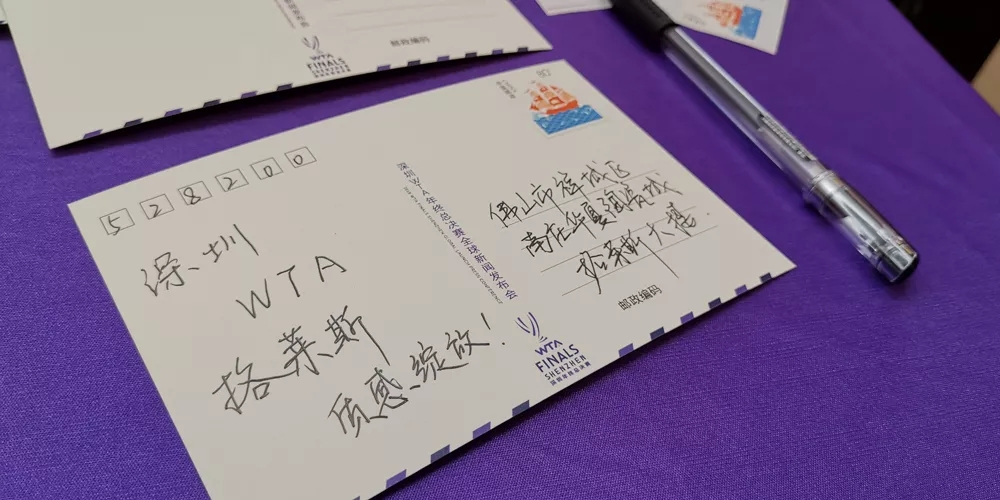 WTA
FINALS
SHENZHEN
邮政编码
528200
深圳
WTA
格莱斯
质感、绽放!
深圳WTA年终总决赛全球新闻发布会
80
佛山市禅城区
南庄华夏陶瓷城
格莱斯大楼.
邮政编码
WTA
FINALS
SHENZHEN
深圳年终总决赛